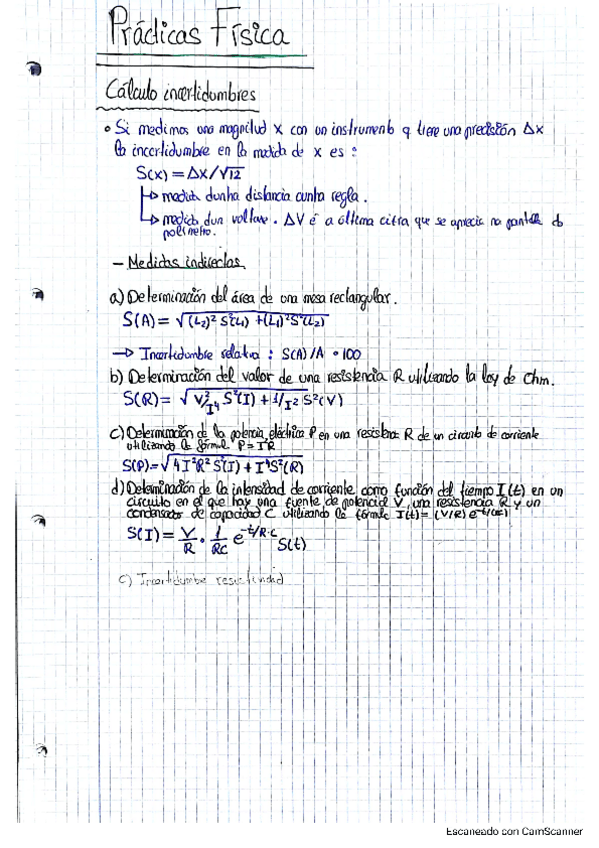 Prácticas Física
Cálculo incertidumbres
• Si medimos una magnitud x con un instrumento q tiene una precisión Δx
la incertidumbre en la medida de x es :
S(x) = Δx/√12
↳ medida dunha distancia cunha regla.
↳ medida dun voltaxe. ΔV é a última cifra que se aprecia na pantalla do
polímetro.
- Medidas indirectas
a) Determinación del área de una mesa rectangular.
S(A) = √(L₂)² S²(L₁) + (L₁)² S²(L₂)
→ Incertidumbre relativa : S(A)/A · 100
b) Determinación del valor de una resistencia R utilizando la ley de Ohm.
S(R) = √V²/I⁴ S²(I) + 1/I² S²(V)
c) Determinación de la potencia eléctrica P en una resistencia R de un circuito de corriente
utilizando la fórmula P = I²R
S(P) = √4I²R² S²(I) + I⁴S²(R)
d) Determinación de la intensidad de corriente como función del tiempo I(t) en un
circuito en el que hay una fuente de potencial V, una resistencia R y un
condensador de capacidad C utilizando la fórmula I(t) = (V/R) e^-t/(RC)
S(I) = V/R · 1/RC e^-t/R·C S(t)
c) Incertidumbre resistividad
Escaneado con CamScanner